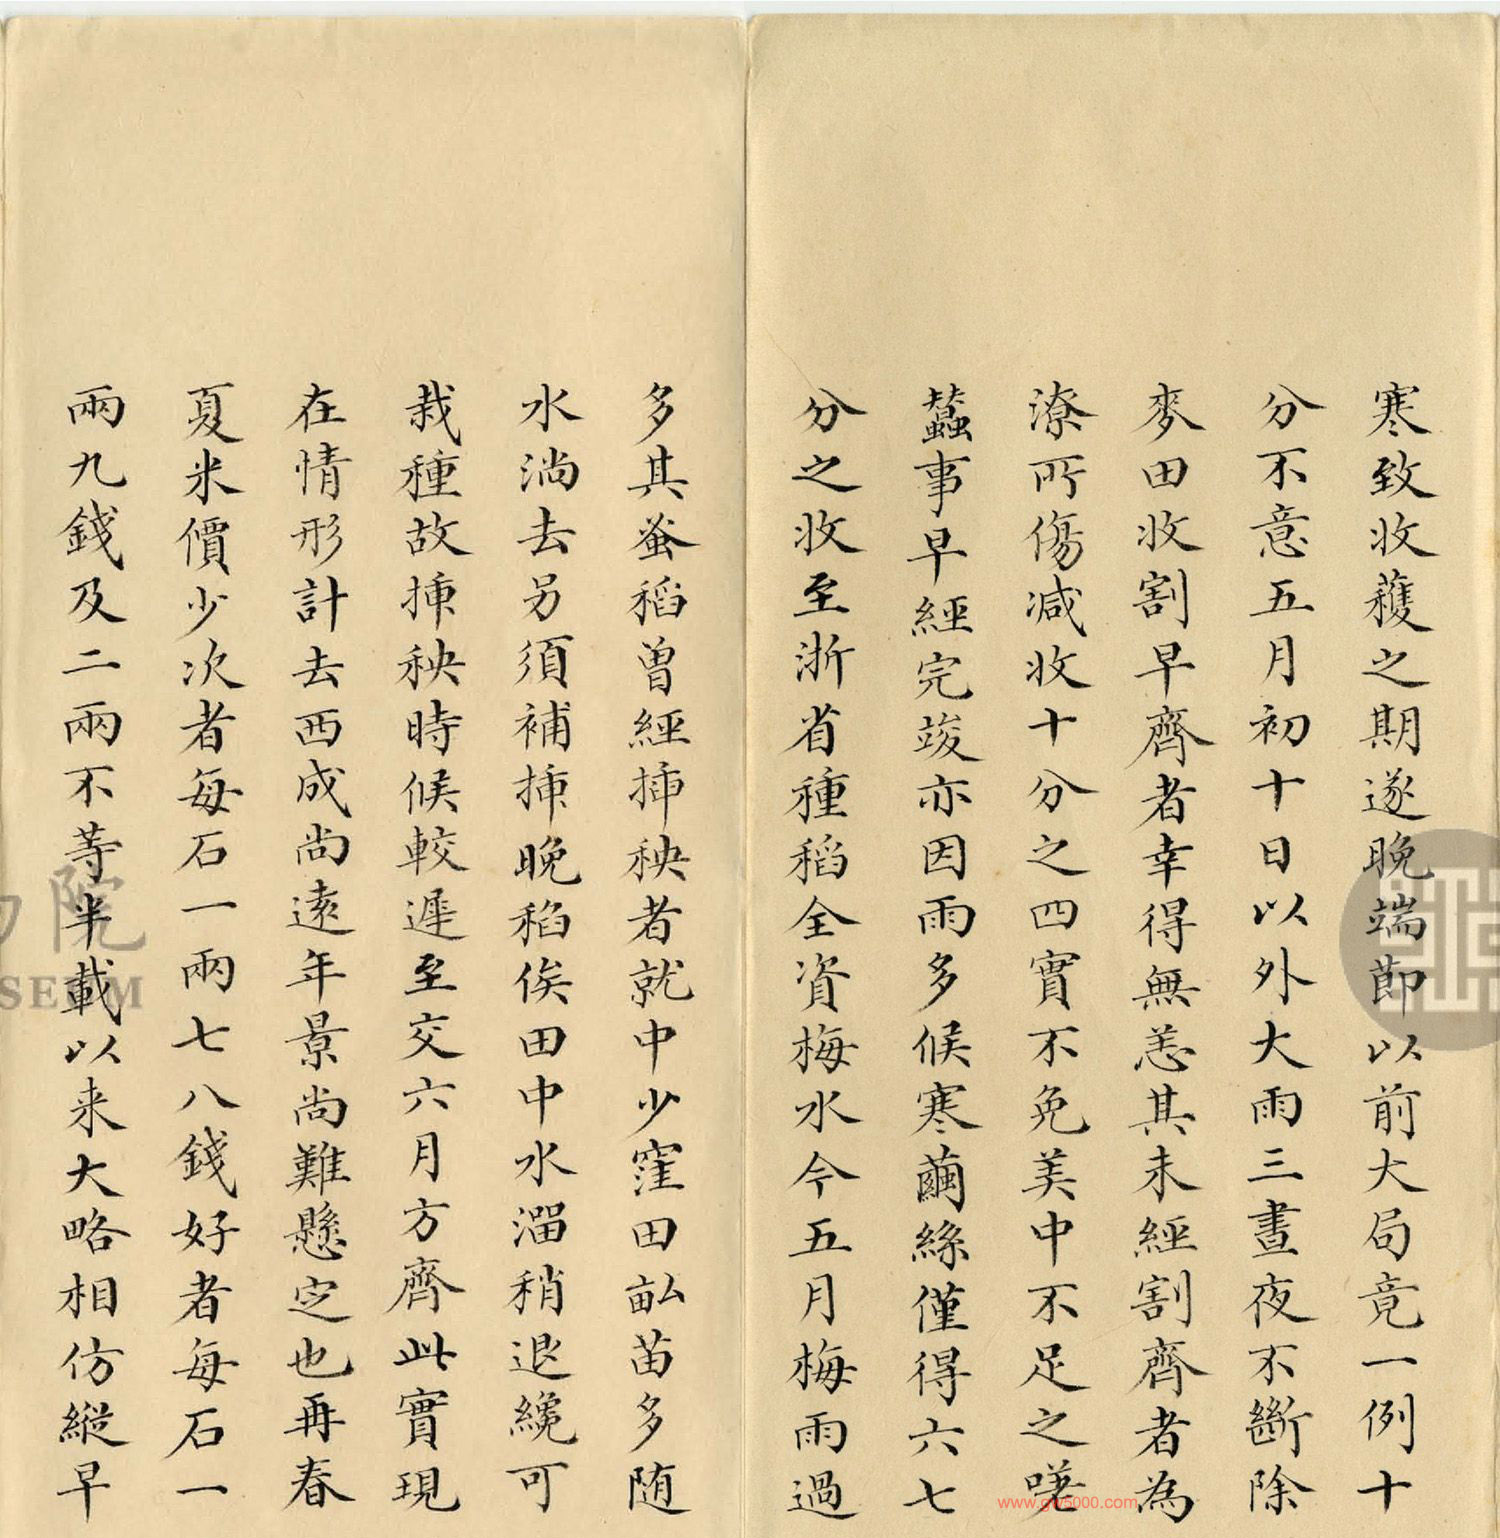 寒致收穫之期遂晚端節以前大局竟一例十
分不意五月初十日以外大雨三晝夜不斷除
麥田收割早齊者幸得無恙其未經割齊者為
潦所傷減收十分之四實不免美中不足之嘆
蠶事早經完竣亦因雨多候寒繭絲僅得六七
分之收至浙省種稻全資梅水今五月梅雨過
多其蚤稻曾經揷秧者就中少窪田畆苗多随
水淌去另須補揷晚稻俟田中水溜稍退纔可
栽種故揷秧時候較遲至交六月方齊此實現
在情形計去西成尚遠年景尚難懸定也再春
夏米價少次者每石一兩七八錢好者每石一
兩九錢及二兩不等半載以来大略相仿縱早
院
SEUM
www.gw5000.com